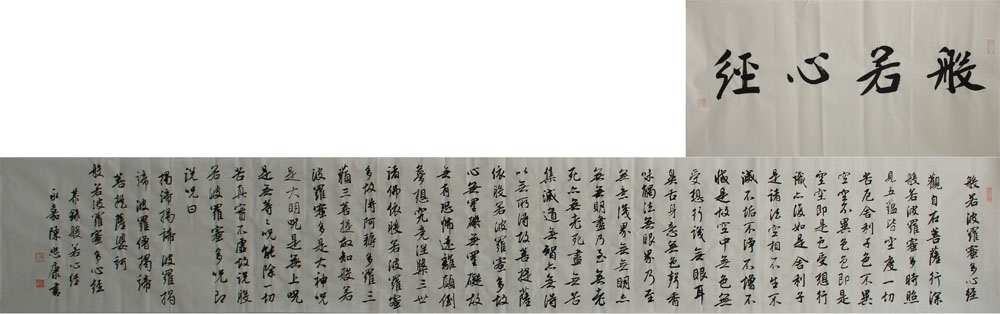 般若心經
般若波羅蜜多心經
觀自在菩薩行深
般若波羅蜜多時照
見五蘊皆空度一切
苦厄舍利子色不異
空空不異色色即是
空空即是色受想行
識亦復如是舍利子
是諸法空相不生不
滅不垢不淨不增不
減是故空中無色無
受想行識無眼耳
鼻舌身意無色聲香
味觸法無眼界乃至
無意識界無無明亦
無無明盡乃至無老
死亦無老死盡無苦
集滅道無智亦無得
以無所得故菩提薩
依般若波羅蜜多故
心無罣礙無罣礙故
無有恐怖遠離顛倒
夢想究竟涅槃三世
諸佛依般若波羅蜜
多故得阿耨多羅三
藐三菩提故知般若
波羅蜜多是大神咒
是大明咒是無上咒
是無等々咒能除一切
苦真實不虛故說般
若波羅蜜多咒即
說咒曰
揭諦揭諦波羅揭
諦波羅僧揭諦
菩提薩婆訶
般若波羅蜜多心經
恭錄般若心經
永嘉陳思康書